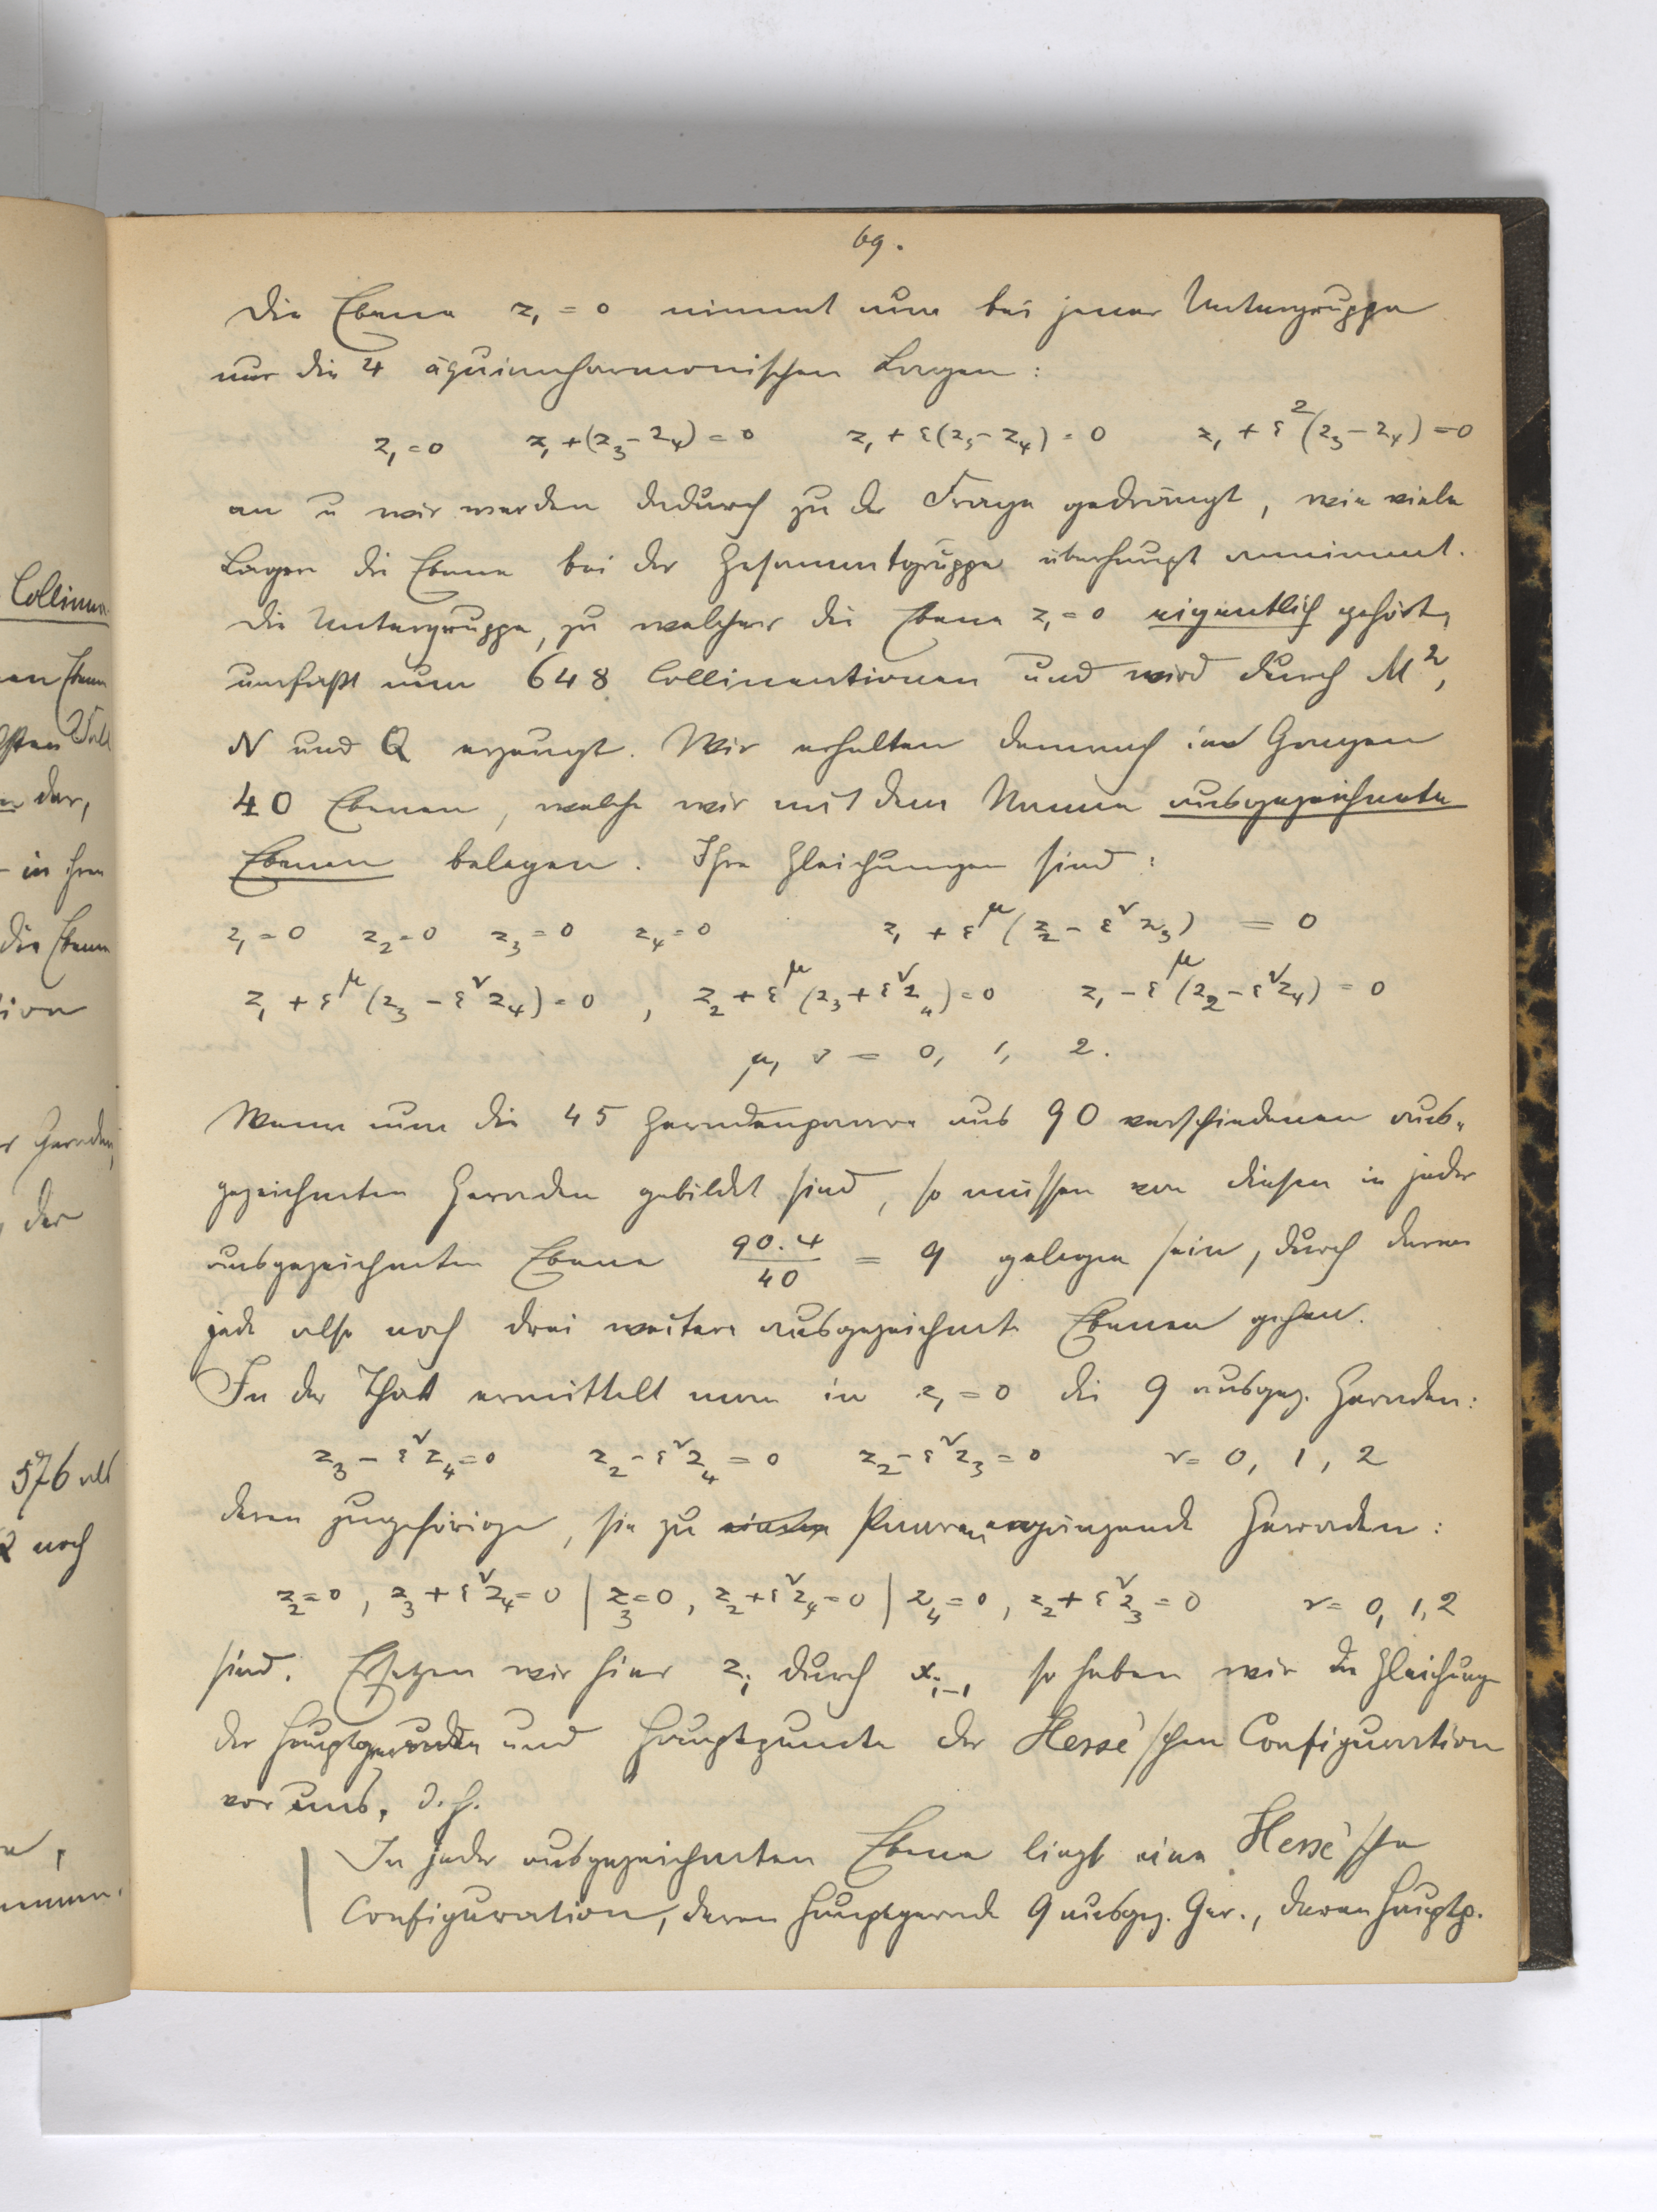 69.
Die Ebene z₁ = 0 nimmt nun bei jener Untergruppe
nur die 4 äquianharmonischen Lagen:
z₁ = 0 z₁ + (z₃ - z₄) = 0 z₁ + ε(z₃ - z₄) = 0 z₁ + ε²(z₃ - z₄) = 0
an u wir werden dadurch zu der Frage gedrängt, wie viele
Lagen die Ebene bei der Gesammtgruppe überhaupt annimmt.
Die Untergruppe, zu welcher die Ebene z₁ = 0 eigentlich gehört,
umfaßt nun 648 Collineationen und wird durch M²,
N und Q erzeugt. Wir erhalten demnach im Ganzen
40 Ebenen, welche wir mit dem Namen ausgezeichnete
Ebenen belegen. Ihre Gleichungen sind:
z₁ = 0 z₂ = 0 z₃ = 0 z₄ = 0 z₁ + ε^μ (z₂ - ε^ν z₃) = 0
z₁ + ε^μ (z₃ - ε^ν z₄) = 0, z₂ + ε^μ (z₃ + ε^ν z₄) = 0 z₁ - ε^μ (z₂ - ε^ν z₄) = 0
μ, ν = 0, 1, 2.
Wenn nun die 45 Geradenpaare aus 90 verschiedenen aus-
gezeichneten Geraden gebildet sind, so müssen von diesen in jeder
ausgezeichneten Ebene 90.4/40 = 9 gelegen sein, durch deren
jede also noch drei weitere ausgezeichnete Ebenen gehen.
In der That ermittelt man in z₁ = 0 die 9 ausgez. Geraden:
z₃ - ε^ν z₄ = 0 z₂ - ε^ν z₄ = 0 z₂ - ε^ν z₃ = 0 ν = 0, 1, 2
deren zugehörige, sie zu Paaren ergänzende Geraden:
z₂ = 0, z₃ + ε^ν z₄ = 0 | z₃ = 0, z₂ + ε^ν z₄ = 0 | z₄ = 0, z₂ + ε^ν z₃ = 0 ν = 0, 1, 2
sind. Ersetzen wir hier zᵢ durch xᵢ₋₁ so haben wir die Gleichung
der Hauptgeraden und Hauptpuncte der Hesse'schen Configuration
vor uns, d. h.
In jeder ausgezeichneten Ebene liegt eine Hesse'sche
Configuration, deren Hauptgerade 9 ausgez. Ger., deren Hauptp.
Collinea
en Ebene
dar,
in ihre
die Ebene
tion
r Geraden,
, der
576 als
Q noch